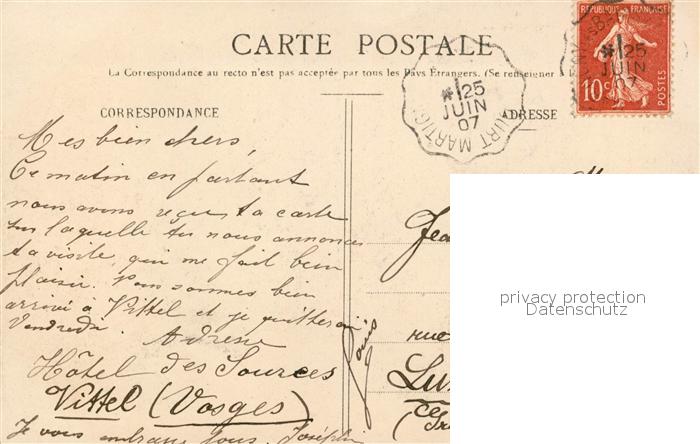 CARTE POSTALE
La Correspondance au recto n'est pas acceptée par tous les Pays Étrangers. (Se renseigner
CORRESPONDANCE
ADRESSE
RÉPUBLIQUE FRANÇAISE
10c
POSTES
*25
JUIN
07
*25
JUIN
07
COURT MARTIG
Mes bien chers,
Ce matin en partant
nous avons reçu ta carte
sur laquelle tu nous annonces
ta visite, qui me fait bien
plaisir. Nous sommes bien
arrivé à Vittel et je quitterai
Vendredi. Adresse
Hôtel des Sources
Vittel (Vosges)
Je vous embrasse tous. Joséphin
Louis
Jea
rue
Lu
privacy protection
Datenschutz